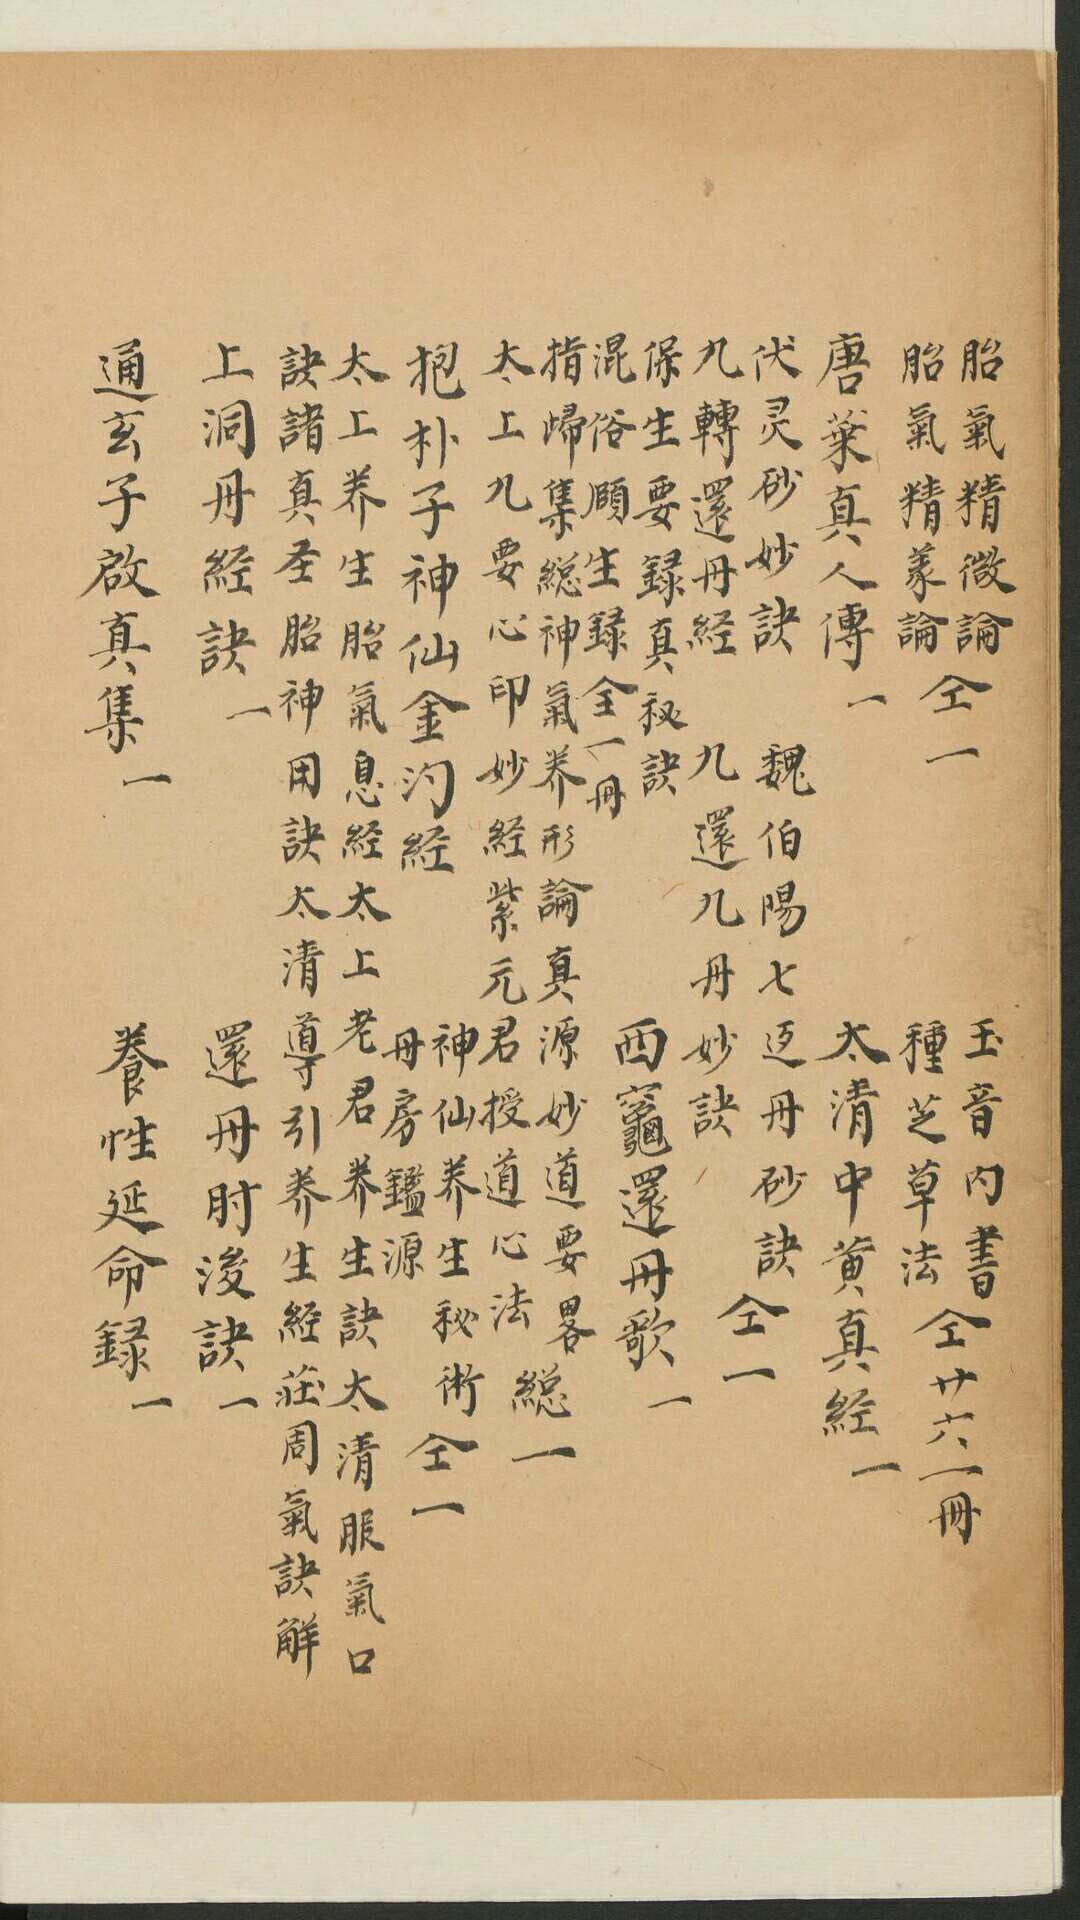 胎氣精微論
胎氣精義論 仝一
玉音内書
種芝草法 仝廿六一冊
唐葉真人傳 一
太清中黄真经 一
伏灵砂妙訣
魏伯陽七返丹砂訣
九轉還丹経
九還九丹妙訣 仝一
保生要録真秘訣
混俗頤生録 全一冊
西竈還丹歌 一
指歸集総神氣养形論真源妙道要畧
太上九要心印妙経紫元君授道心法 総一
抱朴子神仙金汋経
神仙养生秘術
丹房鑑源 仝一
太上养生胎氣息経太上老君养生訣太清服氣口
訣諸真圣胎神用訣太清導引养生経莊周氣訣解
上洞丹経訣 一
還丹肘後訣 一
通玄子啟真集 一
養性延命録 一